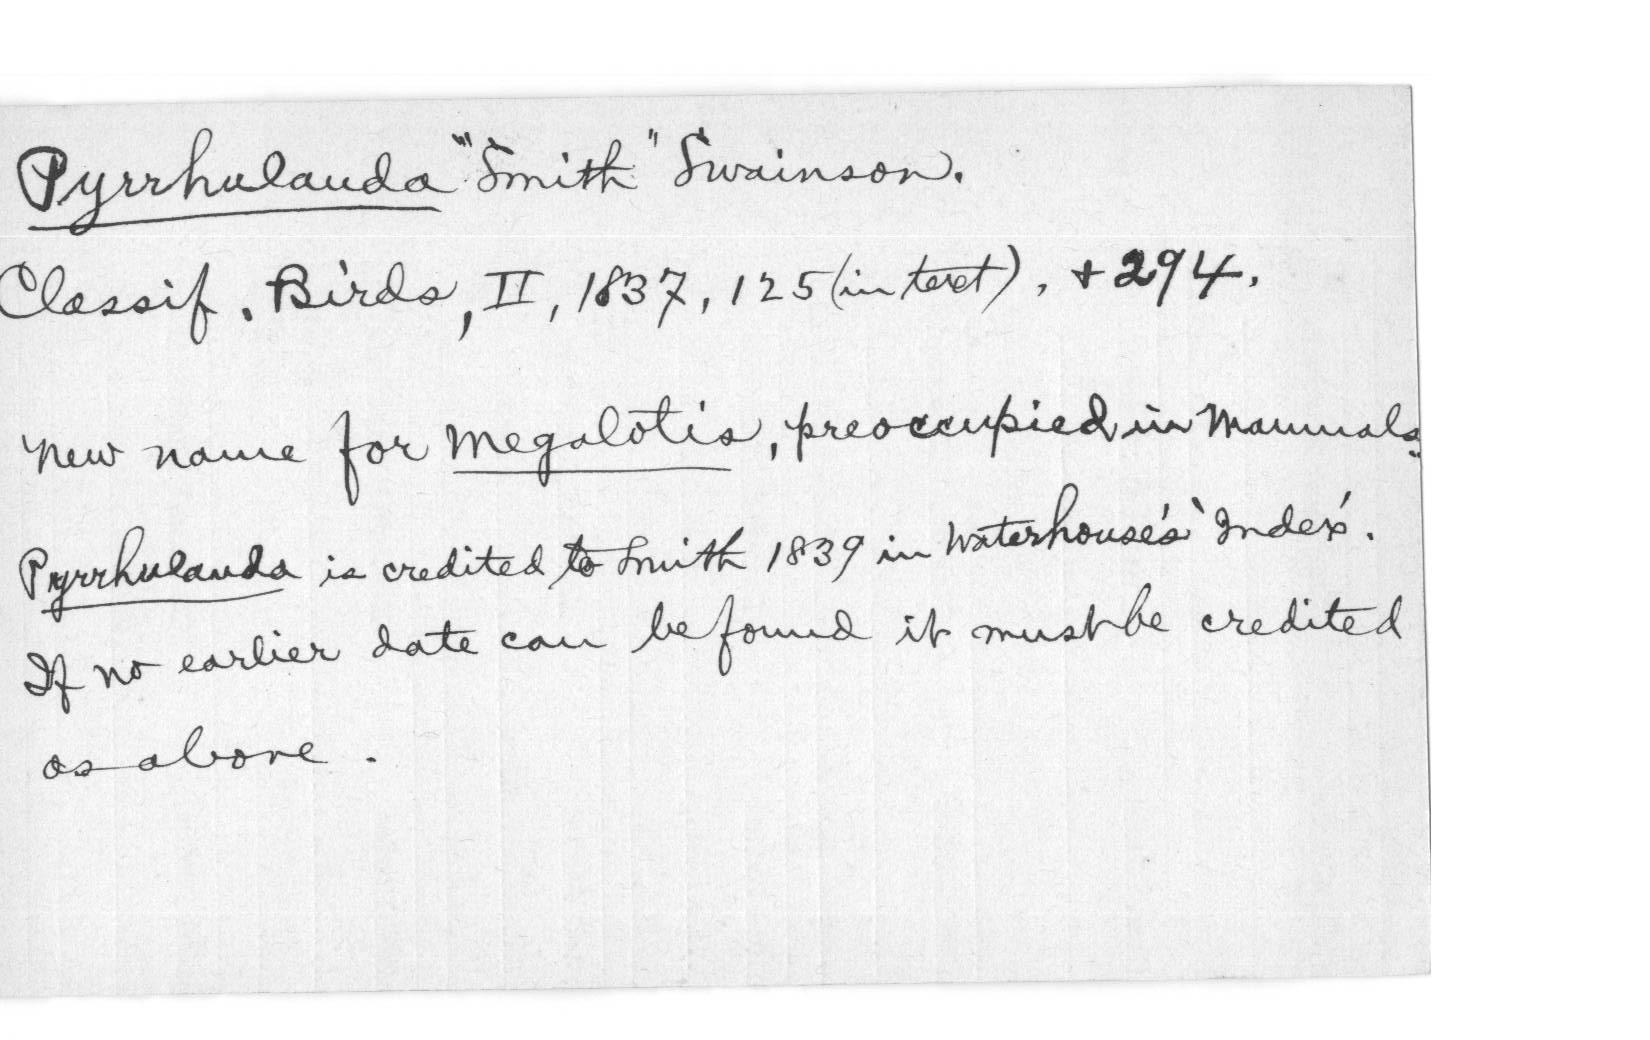 Pyrrhulauda "Smith" Swainson.
Classif. Birds, II, 1837, 125 (in text), + 294.
New name for Megalotis, preoccupied in Mammals.
Pyrrhulauda is credited to Smith 1839 in Waterhouse's 'Index'.
If no earlier date can be found it must be credited
as above.